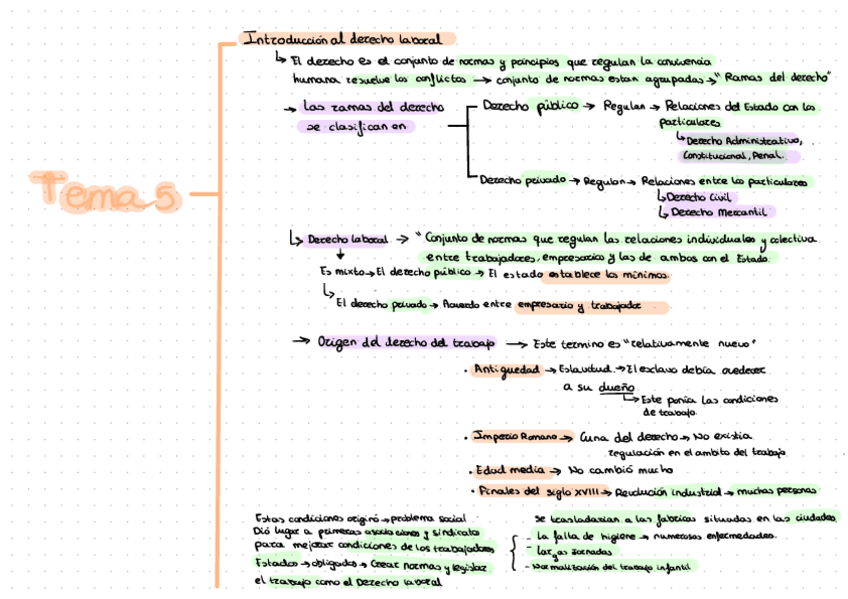 Introducción al derecho laboral
↳ El derecho es el conjunto de normas y principios que regulan la convivencia
humana resuelve los conflictos → conjunto de normas estan agrupadas → "Ramas del derecho"
→ Las ramas del derecho
se clasifican en
Derecho público → Regulan → Relaciones del Estado con los
particulares
↳ Derecho Administrativo,
Constitucional, Penal.
Derecho privado → Regulan → Relaciones entre los particulares
↳ Derecho Civil
↳ Derecho Mercantil
Tema 5
↳ Derecho laboral → "Conjunto de normas que regulan las relaciones individuales y colectiva
entre trabajadores, empresarios y las de ambos con el Estado.
Es mixto → El derecho público → El estado establece los mínimos
↳ El derecho privado → Acuerdo entre empresario y trabajador
→ Origen del derecho del trabajo → Este termino es "relativamente nuevo"
• Antiguedad → Eslavitud → El esclavo debía ovedecer
a su dueño
↳ Este ponía las condiciones
de trabajo.
• Imperio Romano → Cuna del derecho → No existia
regulación en el ambito del trabajo
• Edad media → No cambió mucho
• Finales del siglo XVIII → Revolución industrial → muchas personas
se trasladarian a las fabricas situadas en las ciudades.
- La falta de higiene → numerosas enfermedades.
- Largas Jornadas
- Normalización del trabajo infantil
Estas condiciones originó → problema social
Dió lugar a primeras asociaciones y sindicato
para mejorar condiciones de los trabajadores
Estados → obligados → Crear normas y legislar
el trabajo como el Derecho laboral